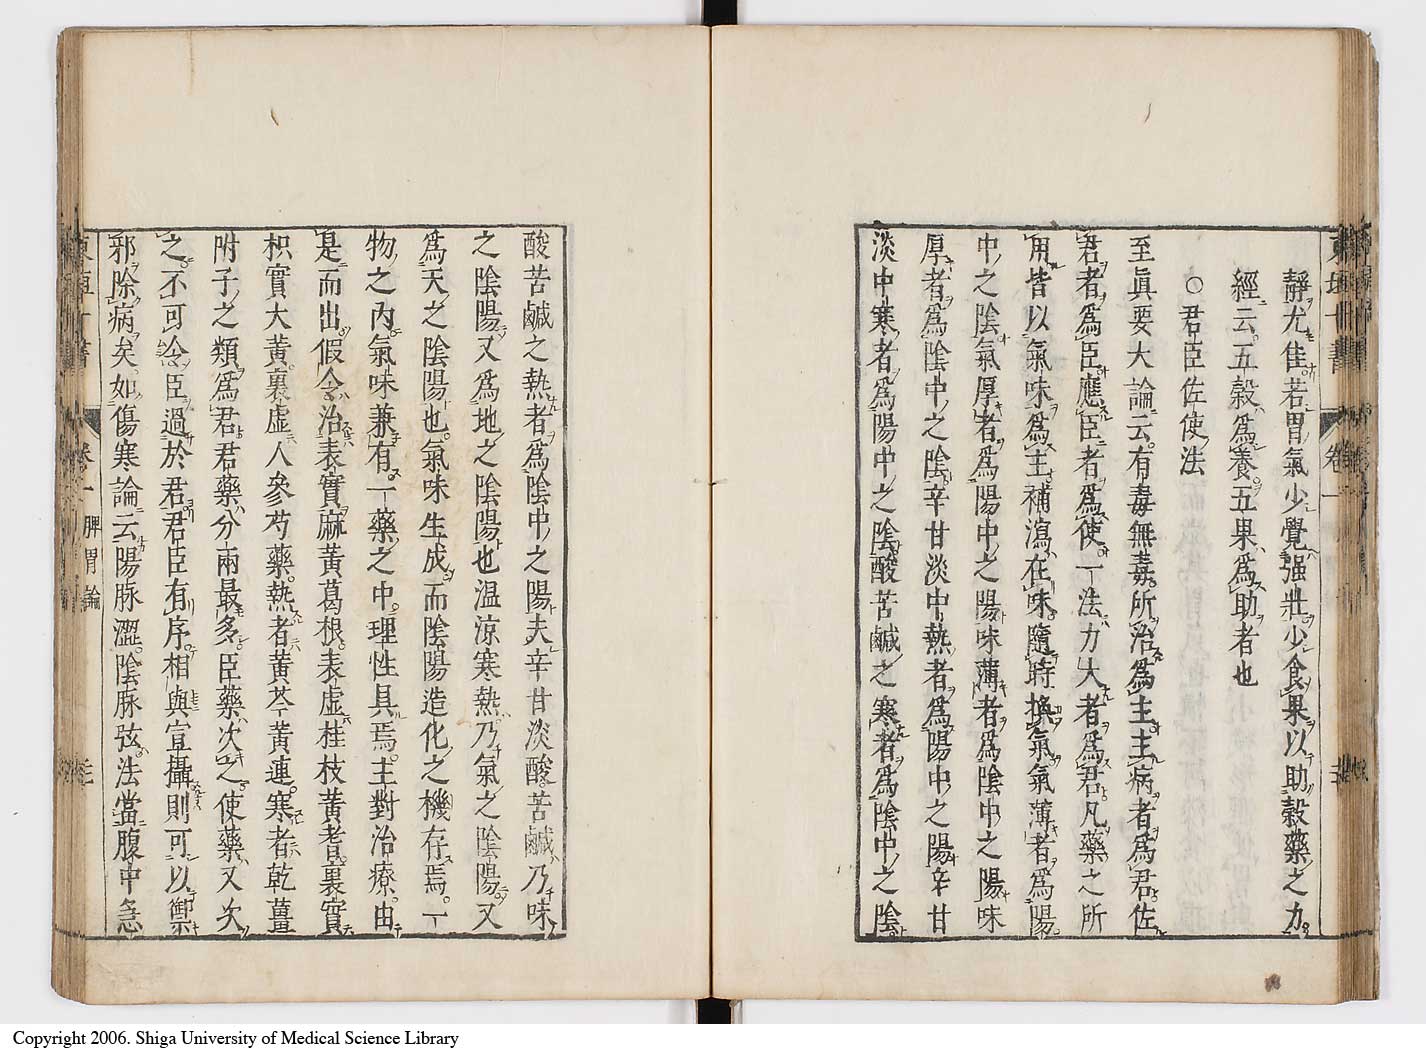 靜尤佳若胃氣少覺强壯少食果以助穀藥之力
經云五穀爲養五果爲助者也
○君臣佐使法
至眞要大論云有毒無毒所治爲主主病者爲君佐
君者爲臣應臣者爲使一法力大者爲君凡藥之所
用皆以氣味爲主補瀉在味隨時換氣氣薄者爲陽
中之陰氣厚者爲陽中之陽味薄者爲陰中之陽味
厚者爲陰中之陰辛甘淡中熱者爲陽中之陽辛甘
淡中寒者爲陽中之陰酸苦鹹之寒者爲陰中之陰
酸苦鹹之熱者爲陰中之陽夫辛甘淡酸苦鹹乃味
之陰陽又爲地之陰陽也温涼寒熱乃氣之陰陽又
爲天之陰陽也氣味生成而陰陽造化之機存焉一
物之內氣味兼有一藥之中理性具焉主對治療由
是而出假令治表實麻黃葛根表虛桂枝黃耆裏實
枳實大黃裏虛人參芍藥熱者黃芩黃連寒者乾薑
附子之類爲君君藥分兩最多臣藥次之使藥又次
之不可令臣過於君君臣有序相與宣攝則可以禦
邪除病矣如傷寒論云陽脉澀陰脉弦法當腹中急
卷一 脾胃論
Copyright 2006. Shiga University of Medical Science Library